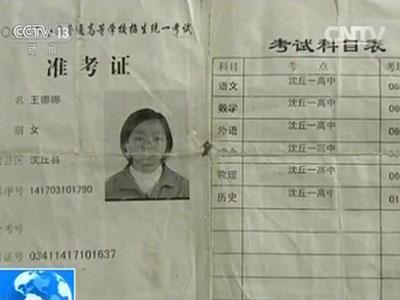 CCTV 13
新闻
CNTV
普通高等学校招生统一考试
准考证
名 王娜娜
别 女
县区 沈丘县
序号 141703101790
考号
证号 03411417101637
考试科目表
科目 考点 考场
语文 沈丘一高中 06
数学 沈丘一高中 06
外语 沈丘一高中 06
沈丘一高中 06
物理 沈丘一高中 06
历史 沈丘一高中 01